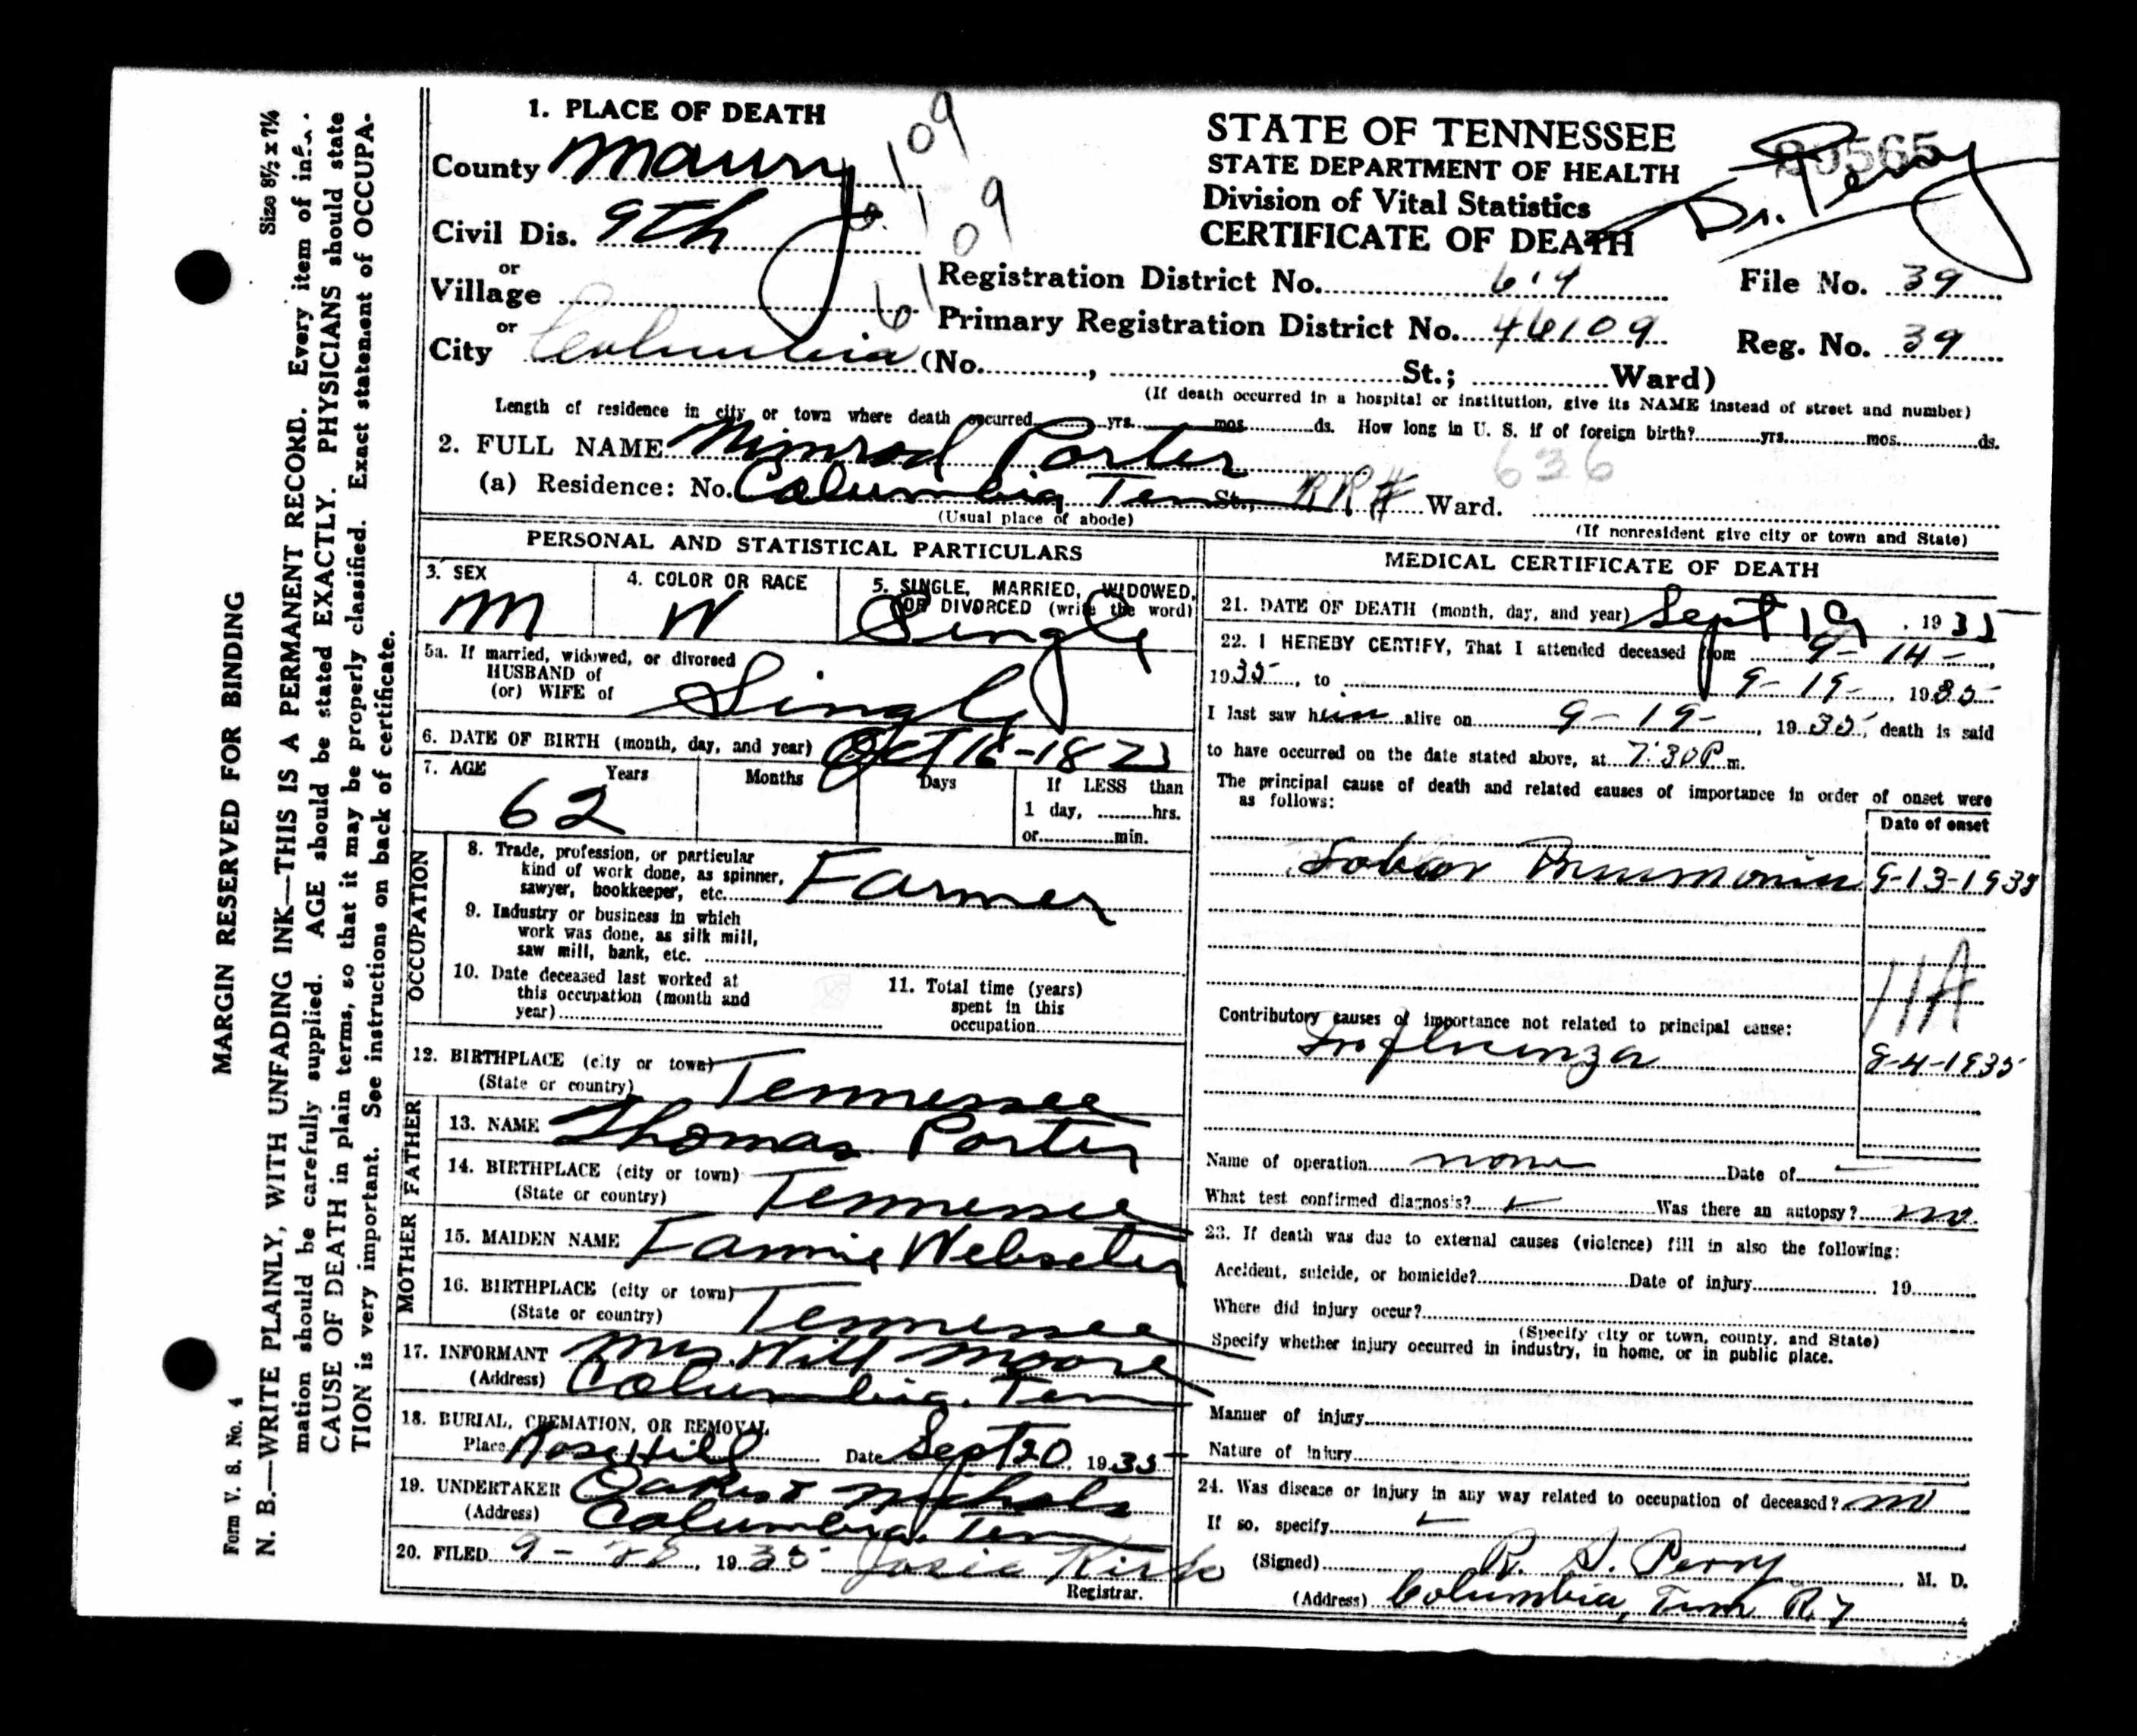 MARGIN RESERVED FOR BINDING
Size 8½ x 7¼
N. B.—WRITE PLAINLY, WITH UNFADING INK—THIS IS A PERMANENT RECORD. Every item of
mation should be carefully supplied. AGE should be stated EXACTLY. PHYSICIANS should state
CAUSE OF DEATH in plain terms, so that it may be properly classified. Exact statement of OCCUPA-
TION is very important. See instructions on back of certificate.
Form V. S. No. 4
1. PLACE OF DEATH
County Maury
Civil Dis. 9th
or
Village
or
City Columbia (No. , St.; Ward)
109
109
STATE OF TENNESSEE
STATE DEPARTMENT OF HEALTH
Division of Vital Statistics
CERTIFICATE OF DEATH
Dr. Perry
Registration District No. File No. 39
Primary Registration District No. 46109 Reg. No. 39
(If death occurred in a hospital or institution, give its NAME instead of street and number)
Length of residence in city or town where death occurred yrs. mos. ds. How long in U. S. if of foreign birth? yrs. mos. ds.
2. FULL NAME Nimrod Porter
636
(a) Residence: No. Columbia Ten St., RR# Ward.
(Usual place of abode) (If nonresident give city or town and State)
PERSONAL AND STATISTICAL PARTICULARS
3. SEX
M
4. COLOR OR RACE
W
5. SINGLE, MARRIED, WIDOWED,
OR DIVORCED (write the word)
Single
5a. If married, widowed, or divorced
HUSBAND of
(or) WIFE of
Single
6. DATE OF BIRTH (month, day, and year) Oct
7. AGE Years Months Days If LESS than
62 1 day, hrs.
or min.
OCCUPATION
8. Trade, profession, or particular
kind of work done, as spinner,
sawyer, bookkeeper, etc. Farmer
9. Industry or business in which
work was done, as silk mill,
saw mill, bank, etc.
10. Date deceased last worked at
this occupation (month and
year)
11. Total time (years)
spent in this
occupation
12. BIRTHPLACE (city or town)
(State or country) Tennessee
FATHER
13. NAME Thomas Porter
14. BIRTHPLACE (city or town)
(State or country) Tennessee
MOTHER
15. MAIDEN NAME Fannie Webster
16. BIRTHPLACE (city or town)
(State or country) Tennessee
17. INFORMANT Mrs. Will Moore
(Address) Columbia, Ten
18. BURIAL, CREMATION, OR REMOVAL
Place Rose Hill Date Sept 20, 1935
19. UNDERTAKER Oakes & Nichols
(Address) Columbia, Ten
20. FILED 1935 Josie Kirk
Registrar.
MEDICAL CERTIFICATE OF DEATH
21. DATE OF DEATH (month, day, and year) Sept 19, 1935
22. I HEREBY CERTIFY, That I attended deceased from 9-14-,
1935, to 9-19-, 1935
I last saw him alive on 9-19-, 1935, death is said
to have occurred on the date stated above, at 7:30P m.
The principal cause of death and related causes of importance in order of onset were
as follows:
Date of onset
Lobar Pneumonia 9-13-1935
11A
Contributory causes of importance not related to principal cause:
Influenza
Name of operation none Date of
What test confirmed diagnosis? Was there an autopsy? no.
23. If death was due to external causes (violence) fill in also the following:
Accident, suicide, or homicide? Date of injury 19
Where did injury occur?
(Specify city or town, county, and State)
Specify whether injury occurred in industry, in home, or in public place.
Manner of injury
Nature of injury
24. Was disease or injury in any way related to occupation of deceased? no
If so, specify
(Signed) R. S. Perry, M. D.
(Address) Columbia, Tenn